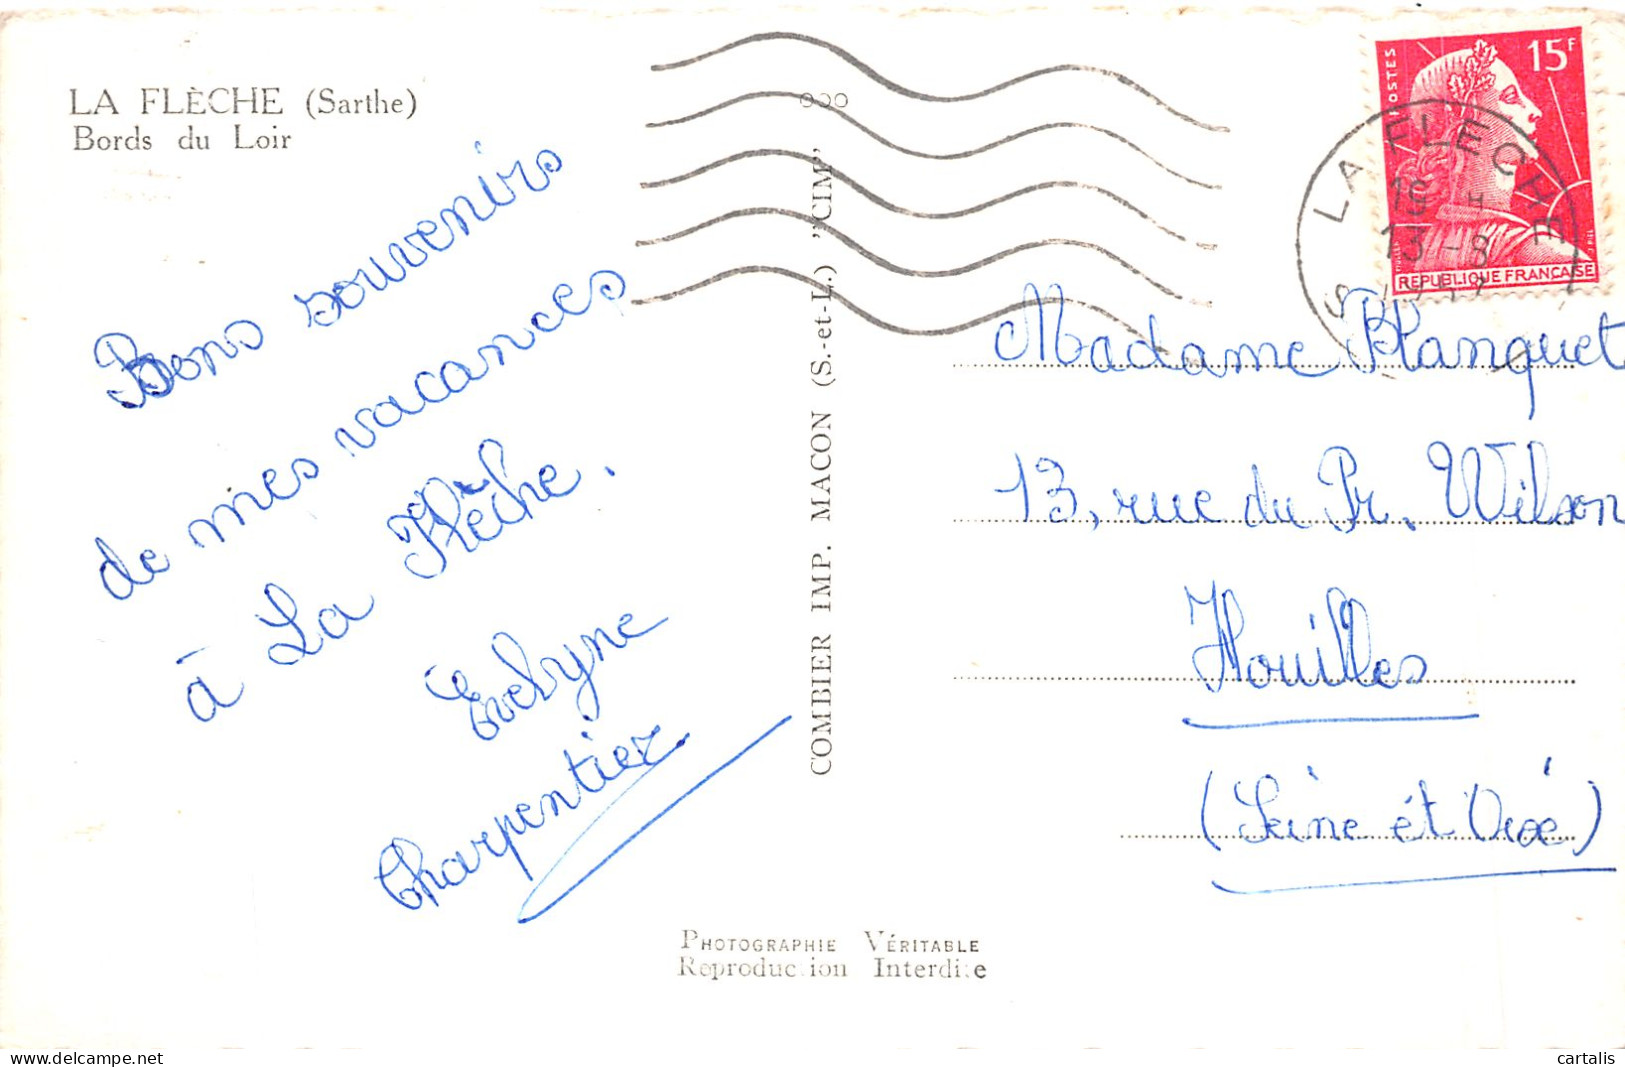 LA FLÈCHE (Sarthe)
Bords du Loir
Bons souvenirs
de mes vacances
à La Flèche.
Evelyne
Charpentier
COMBIER IMP. MACON (S.-et-L.) "CIM"
POSTES
15F
REPUBLIQUE FRANÇAISE
LA FLECHE
16 H
13-8
Madame Planquet
13, rue du Pr. Wilson
Houilles
(Seine ét Oise)
PHOTOGRAPHIE VÉRITABLE
Reproduction Interdite
www.delcampe.net
cartalis